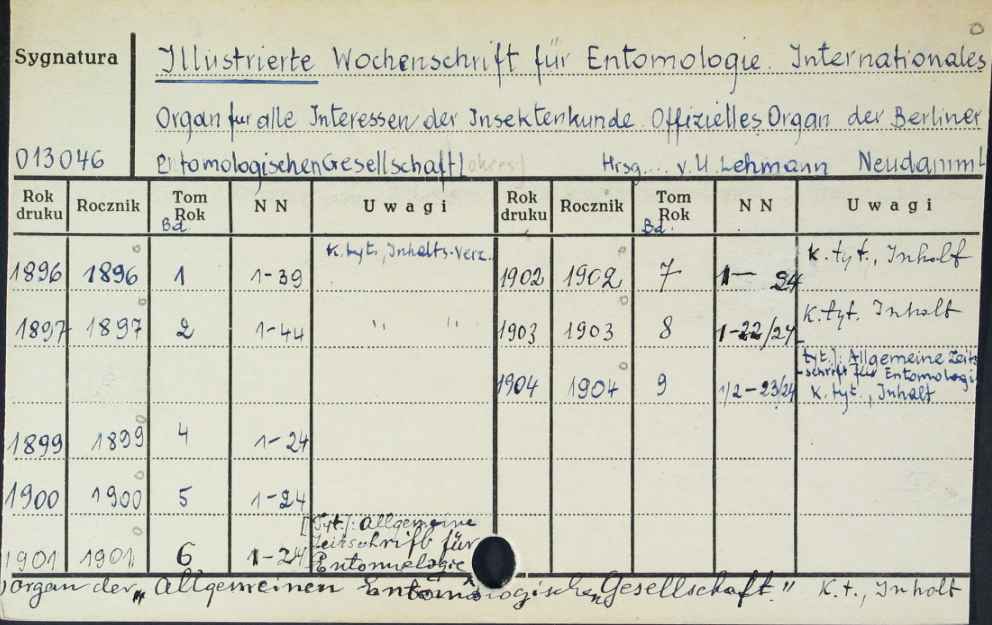 Sygnatura
Illustrierte Wochenschrift für Entomologie. Internationales
Organ für alle Interessen der Insektenkunde. Offizielles Organ der Berliner
013046
Entomologischen Gesellschaft [okres] Hrsg.... v. U. Lehmann Neudamm
Rok druku Rocznik Tom Rok Bd. NN Uwagi Rok druku Rocznik Tom Rok Bd. NN Uwagi
1896 1896 1 1-39 K. tyt., Inhalts-Verz. 1902 1902 7 1-24 K. tyt., Inhalt
1897 1897 2 1-44 " " 1903 1903 8 1-22/24 K. tyt. Inhalt
1904 1904 9 1/2-23/24 tyt.]: Allgemeine Zeit-
schrift für Entomologie
K. tyt., Inhalt
1899 1899 4 1-24
1900 1900 5 1-24
1901 1901 6 1-24 [Tyt.]: Allgemeine
Zeitschrift für
Entomologie
Organ der „Allgemeinen Entomologische Gesellschaft." K. t., Inhalt